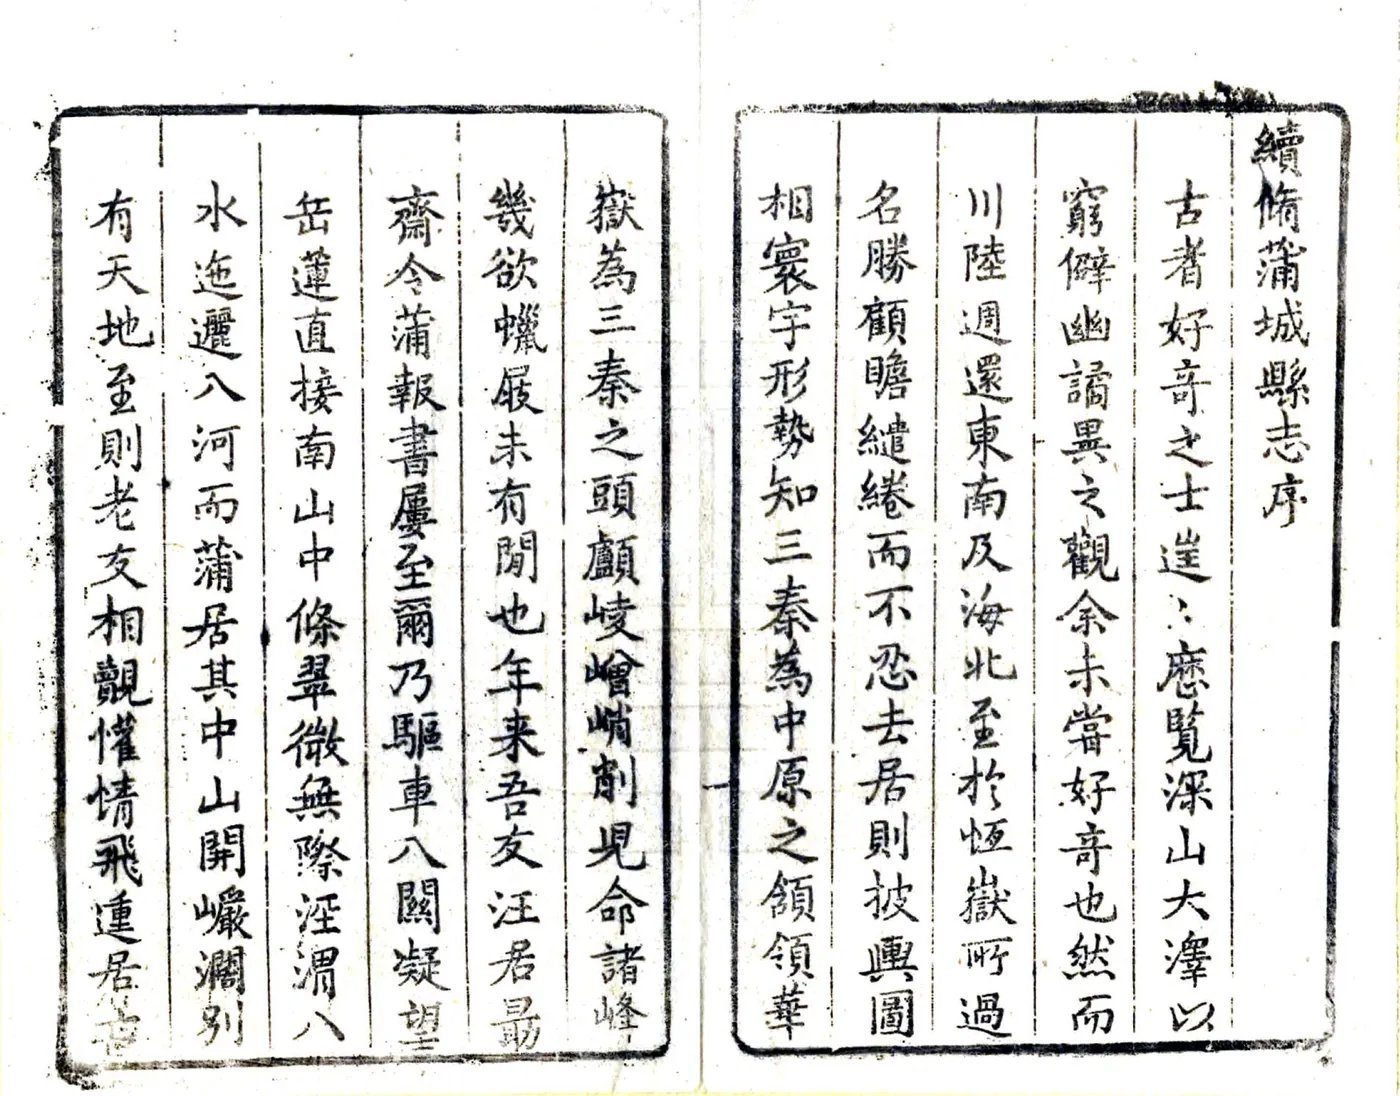 續脩蒲城縣志序
古者好竒之士逞〻歷覧深山大澤以
窮僻幽譎異之觀余未甞好竒也然而
川陸週還東南及海北至於恆嶽所過
名勝顧瞻繾綣而不忍去居則披輿圖
相寰宇形勢知三秦為中原之領領華
嶽為三秦之頭顱崚嶒峭削児命諸峰
幾欲蠟屐未有閒也年来吾友汪居最
齋令蒲報書屢至爾乃驅車入關凝望
岳蓮直接南山中條翠微無際涇渭八
水迤邐入河而蒲居其中山開巘濶别
有天地至則老友相覿懽情飛連居